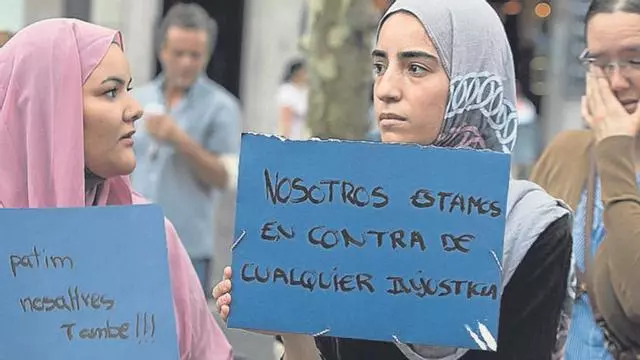 patim
nosaltres
també !!!
NOSOTROS ESTAMOS
EN CONTRA DE
CUALQUIER INJUSTICIA